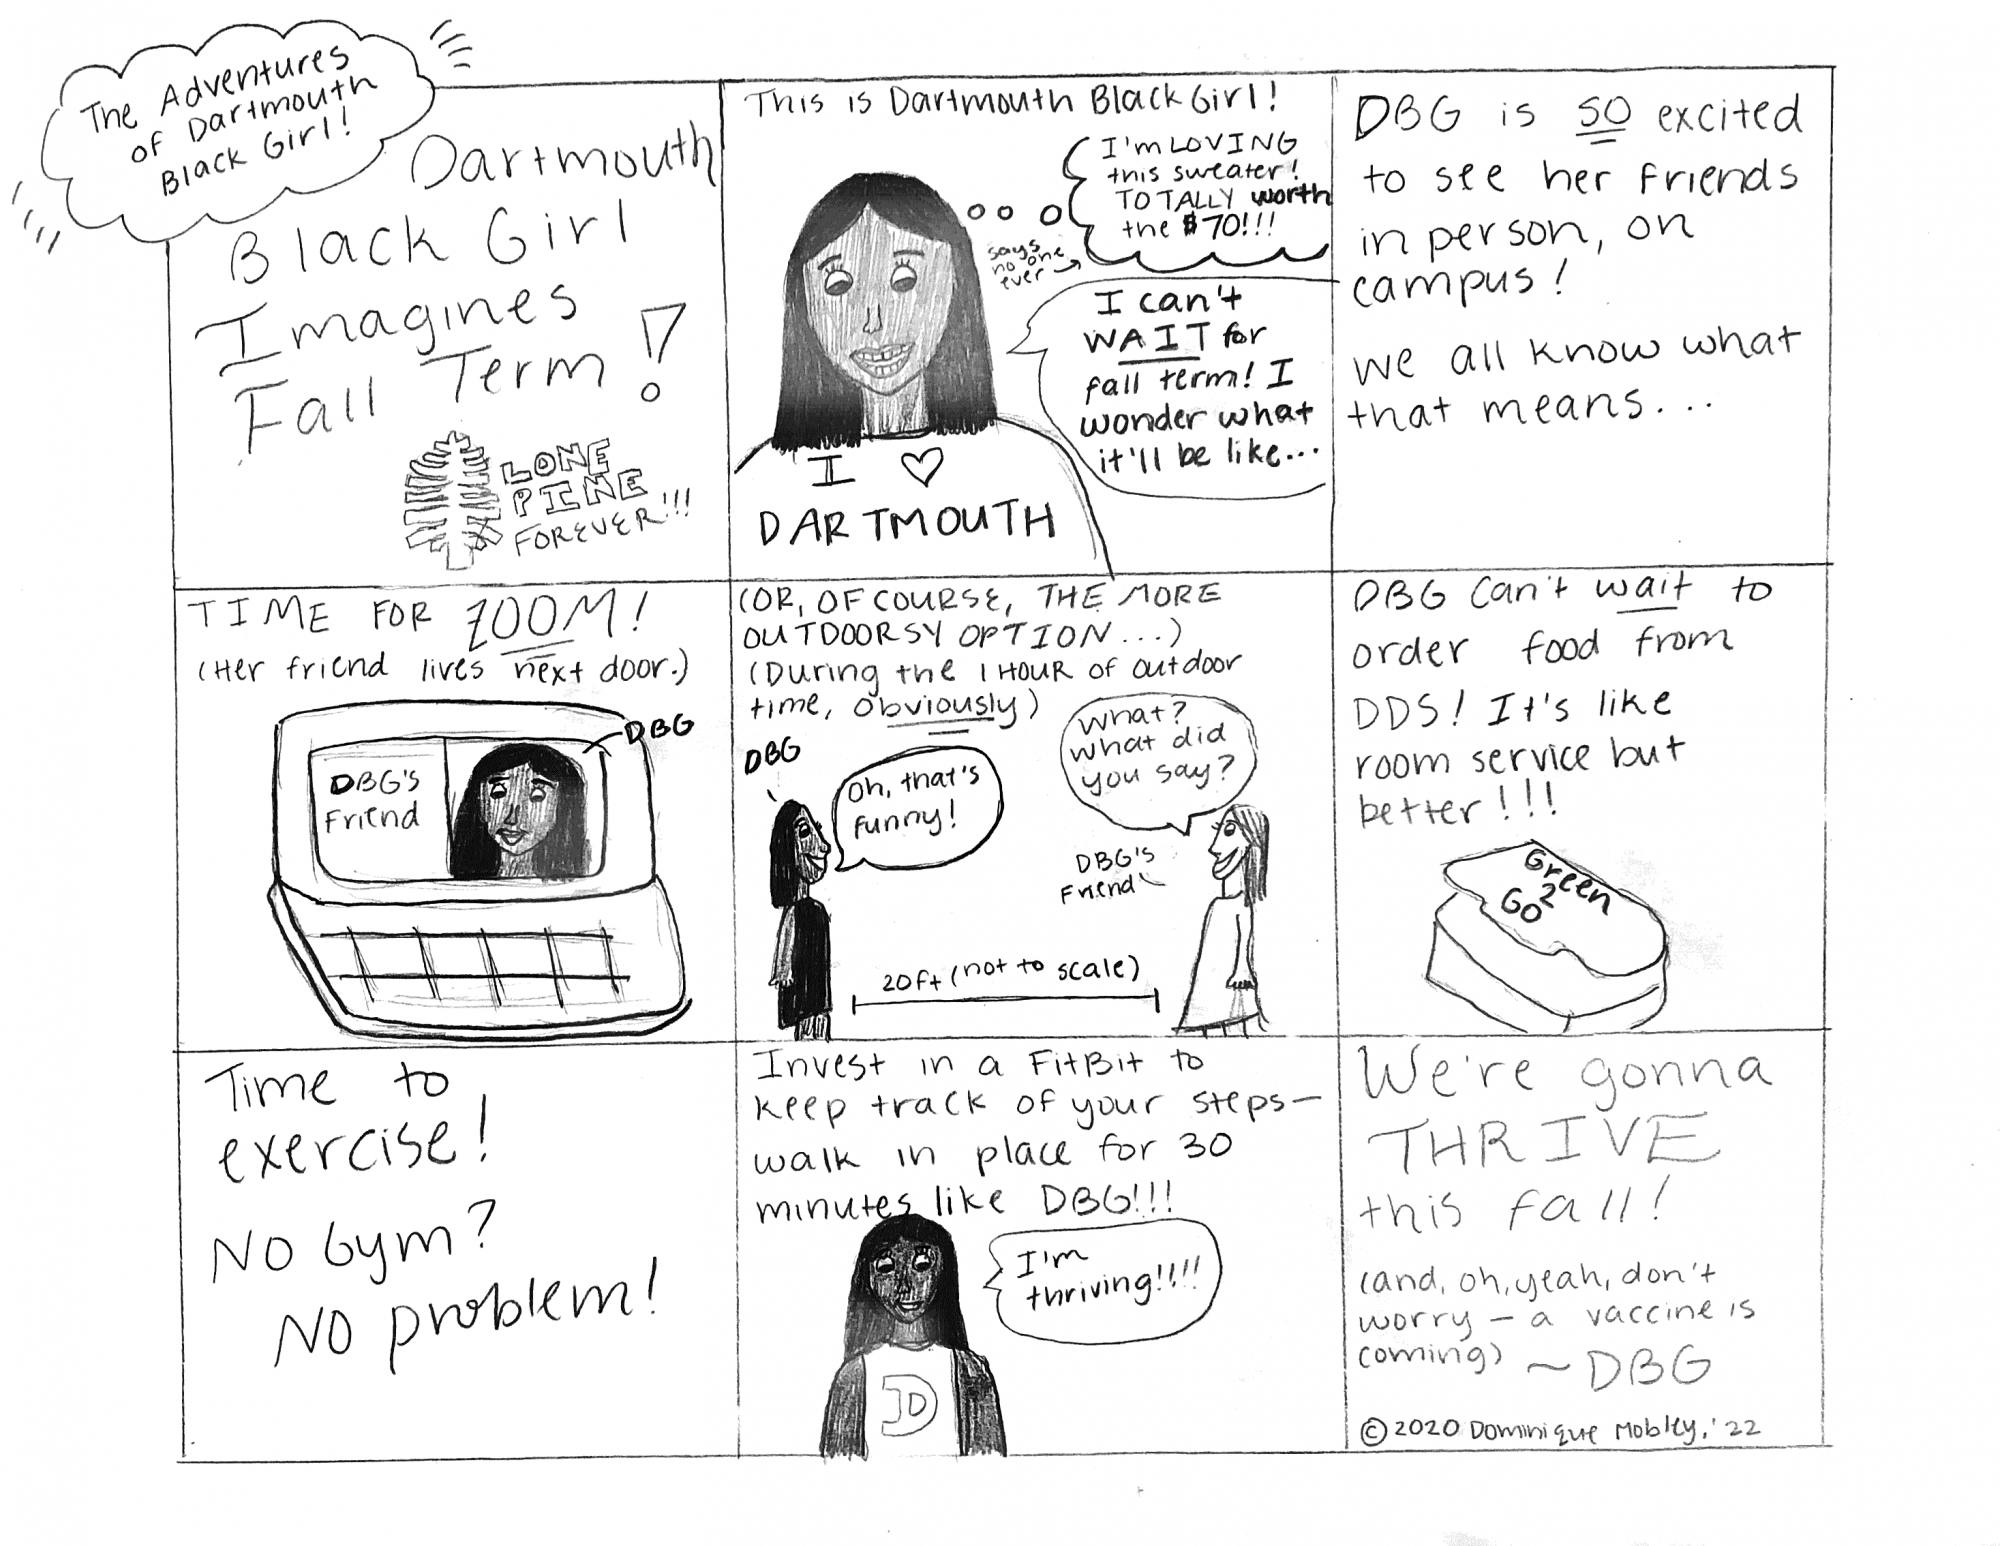 The Adventures
of Dartmouth
Black Girl!
Dartmouth
Black Girl
Imagines
Fall Term!
LONE
PINE
FOREVER!!!
This is Dartmouth Black Girl!
I'm LOVING
this sweater!
TOTALLY worth
the $70!!!
says
no one
ever →
I can't
WAIT for
fall term! I
wonder what
it'll be like...
I ♡
DARTMOUTH
DBG is SO excited
to see her friends
in person, on
campus!
We all know what
that means...
TIME FOR ZOOM!
(Her friend lives next door.)
DBG
DBG's
Friend
(OR, OF COURSE, THE MORE
OUTDOORSY OPTION...)
(During the 1 HOUR of outdoor
time, obviously)
DBG
Oh, that's
funny!
What?
what did
you say?
DBG's
Friend
20ft (not to scale)
DBG can't wait to
order food from
DDS! It's like
room service but
better!!!
Green
2
GO
Time to
exercise!
No Gym?
No problem!
Invest in a FitBit to
keep track of your steps-
walk in place for 30
minutes like DBG!!!
I'm
thriving!!!!
D
We're gonna
THRIVE
this fall!
(and, oh, yeah, don't
worry - a vaccine is
coming) ~ DBG
© 2020 Dominique Mobley, '22